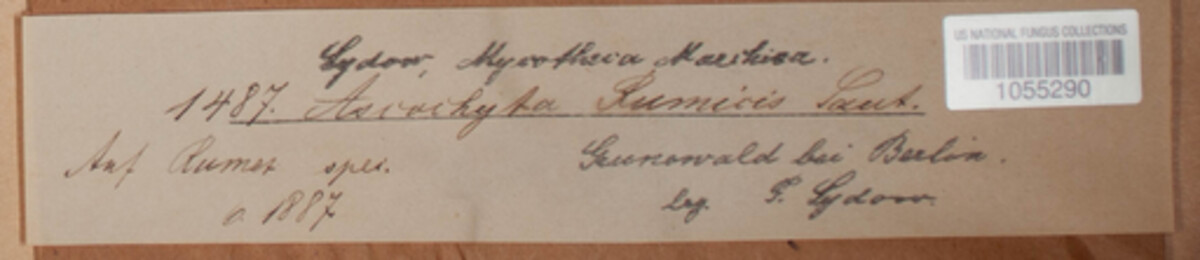 Sydow, Mycotheca Marchica.
US NATIONAL FUNGUS COLLECTIONS
1055290
1487. Ascochyta Rumicis Saut.
Auf Rumex spec.
Grunewald bei Berlin.
1887
leg. P. Sydow.